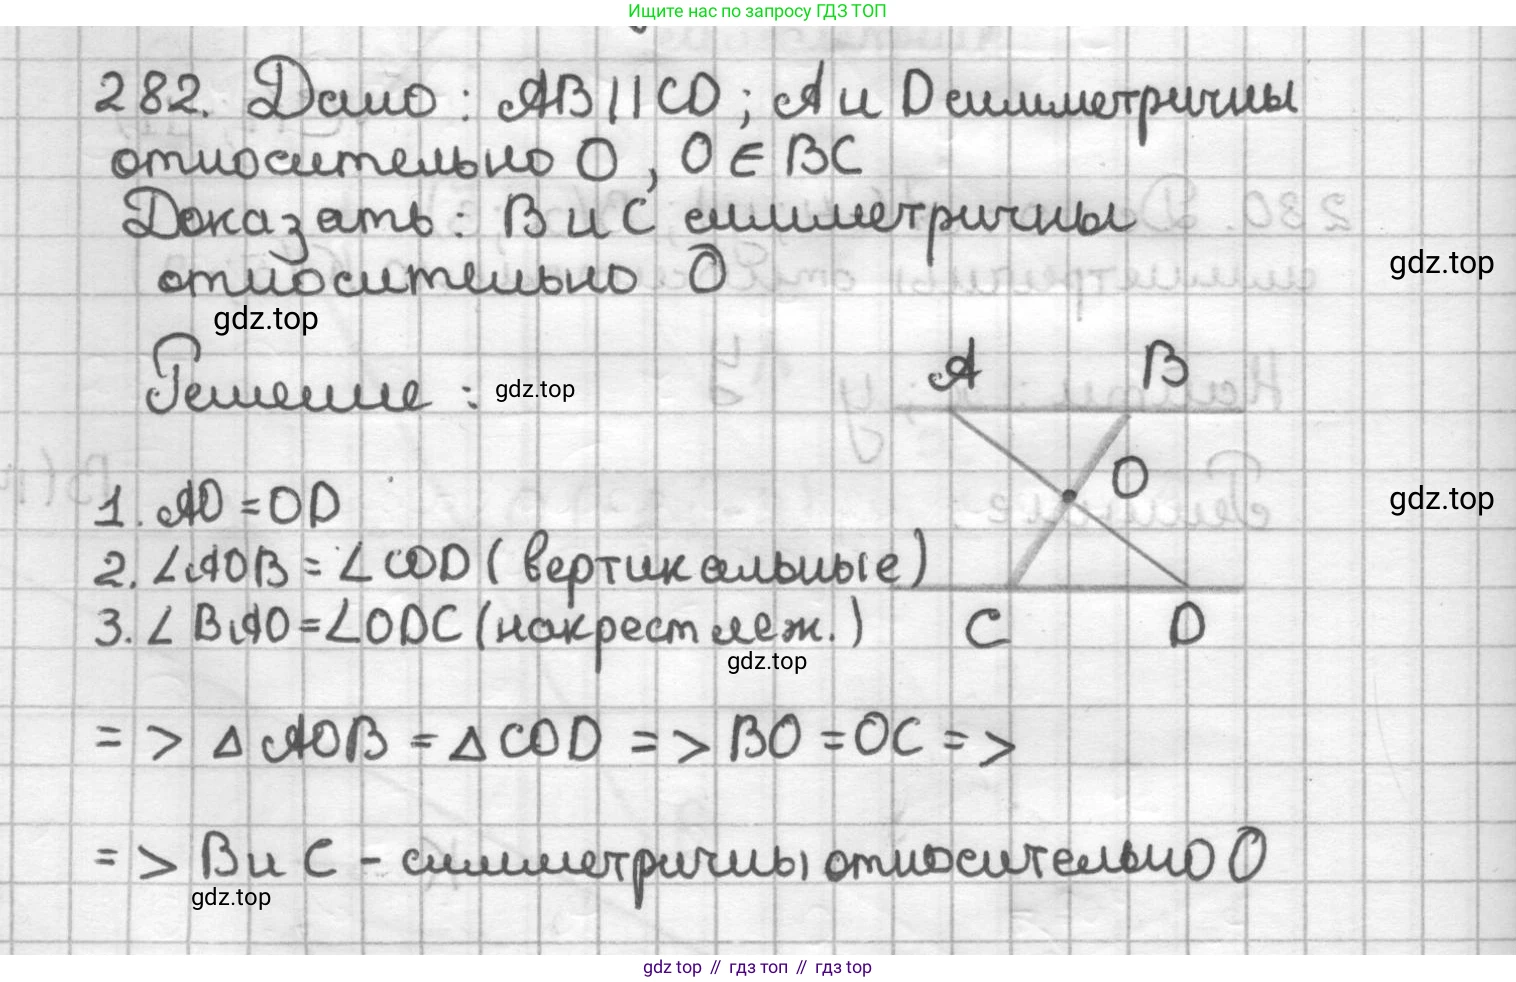 Ищите нас по запросу ГДЗ ТОП
282. Дано: AB || CD; A и D симметричны
относительно O, O ∈ BC
Доказать: B и C симметричны
относительно O
gdz.top
gdz.top
Решение:
gdz.top
A
B
O
1. AO = OD
gdz.top
2. ∠AOB = ∠COD (вертикальные)
3. ∠BAO = ∠ODC (накрест леж.)
C
D
gdz.top
=> △ AOB = △ COD => BO = OC =>
=> B и C - симметричны относительно O
gdz.top
gdz top // гдз топ // гдз top